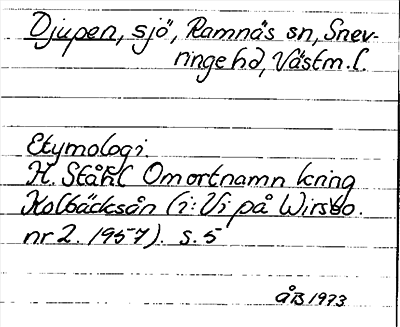 Djupen, sjö, Ramnäs sn, Snev-
ringe hd, Västm. l.
Etymologi.
H. Ståhl Om ortnamn kring
Kolbäcksån (i: Vi på Wirsbo.
nr 2. 1957). s. 5
ÅB 1973